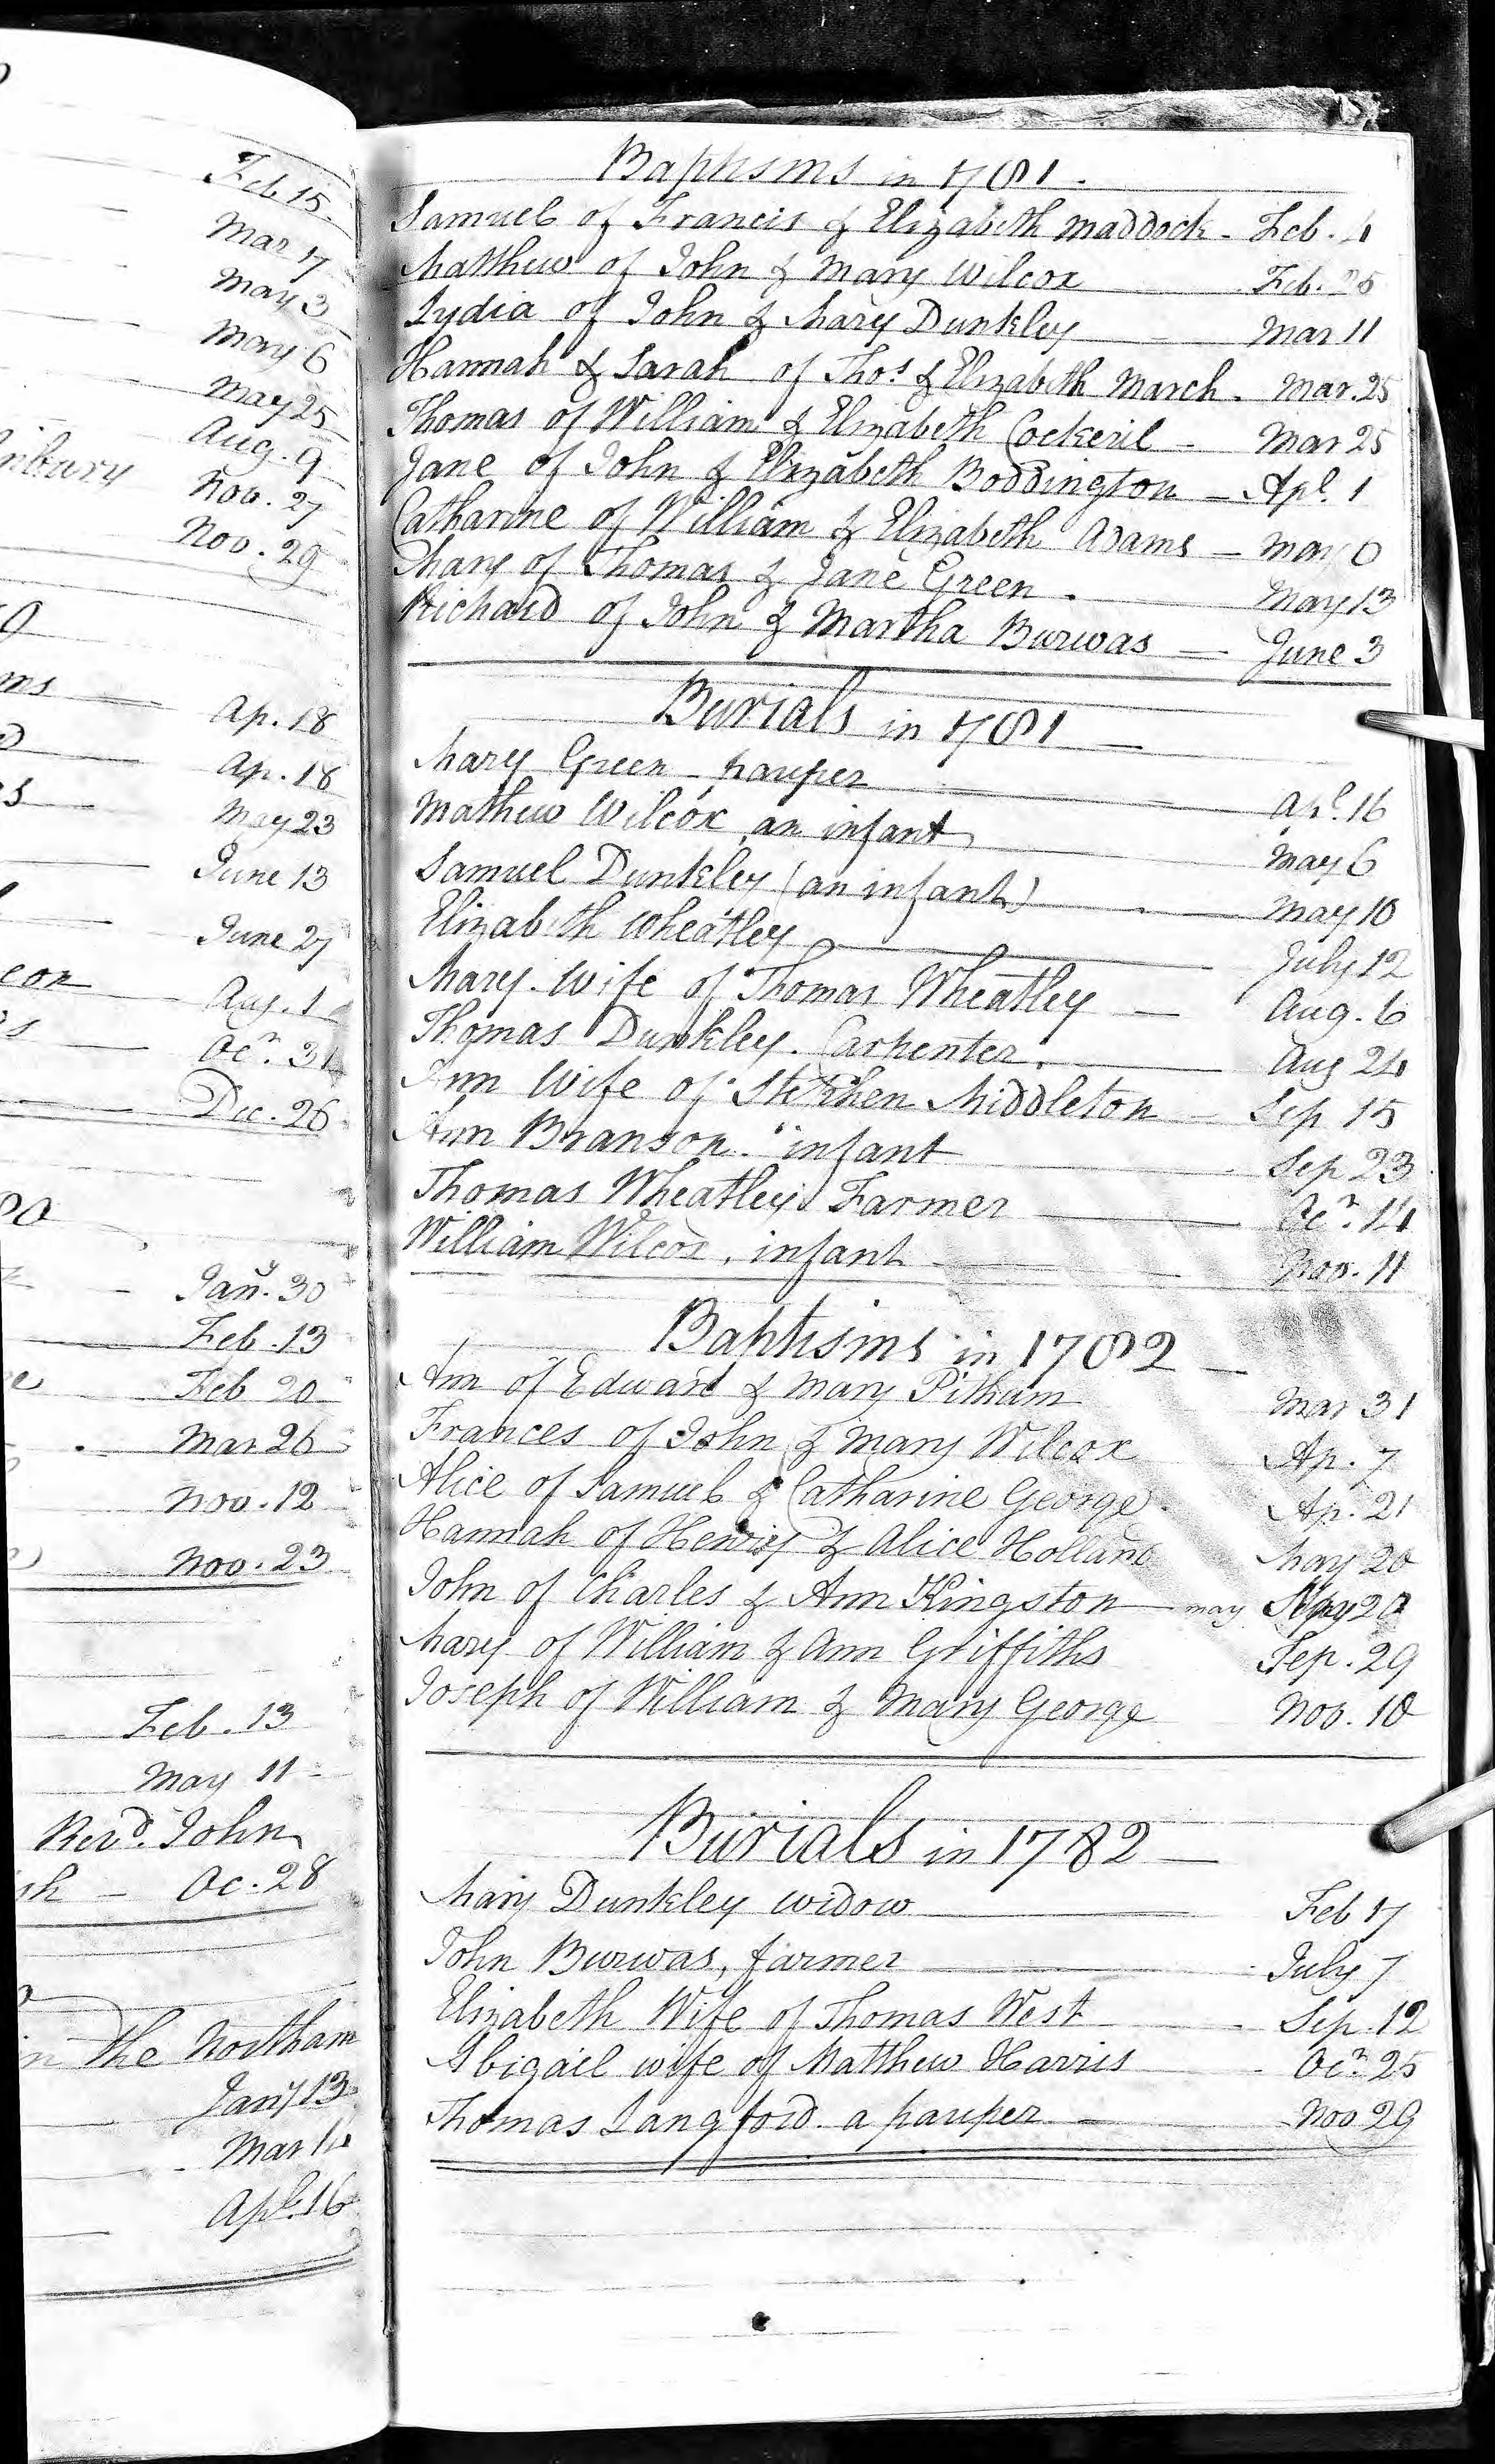 Feb 15.
Mar 7
May 3
May 6
May 25
Aug. 9
Nov. 27
Nov. 29
Ap. 18
Ap. 18
May 23
June 13
June 27
Aug. 1
Ocr. 31
Dec. 26
Jany. 30
Feb. 13
Feb 20
Mar 26
Nov. 12
Nov. 23
Feb. 13
May 11
Revd. John
Oc. 28
the Northam
Jany 13
Mar 4
Apl. 16
Baptisms in 1781.
Samuel of Francis & Elizabeth Maddock - Feb. 4
Matthew of John & Mary Wilcox Feb. 25
Lydia of John & Mary Dunkley Mar 11
Hannah & Sarah of Thos. & Elizabeth March. Mar. 25
Thomas of William & Elizabeth Cockeril - Mar 25
Jane of John & Elizabeth Boddington - Apl. 1
Catharine of William & Elizabeth Adams - May
Mary of Thomas & Jane Green. May 13
Richard of John & Martha Burwas - June 3
Burials in 1781 -
Mary Green - pauper Apl. 16
Mathew Wilcox an infant May 6
Samuel Dunkley (an infant) May 10
Elizabeth Wheatley July 12
Mary. Wife of Thomas Wheatley - Aug. 6
Thomas Dunkley. Carpenter. Aug 24
Ann Wife of Stephen Middleton - Sep 15
Ann Branson. infant Sep 23
Thomas Wheatley Farmer Ocr. 14
William Wilcox, infant Nov. 11
Baptisms in 1782 -
Ann of Edward & Mary Pitham Mar 31
Frances of John & Mary Wilcox Ap. 7
Alice of Samuel & Catharine George. Ap. 21
Hannah of Henry & Alice Holland May 20
John of Charles & Ann Kingston may May 20
Mary of William & Ann Griffiths Sep. 29
Joseph of William & Mary George Nov. 10
Burials in 1782 -
Mary Dunkley widow Feb 17
John Burwas, farmer July 7
Elizabeth Wife of Thomas West Sep. 12
Abigail wife of Matthew Harris Ocr. 25
Thomas Langford a pauper Nov 29